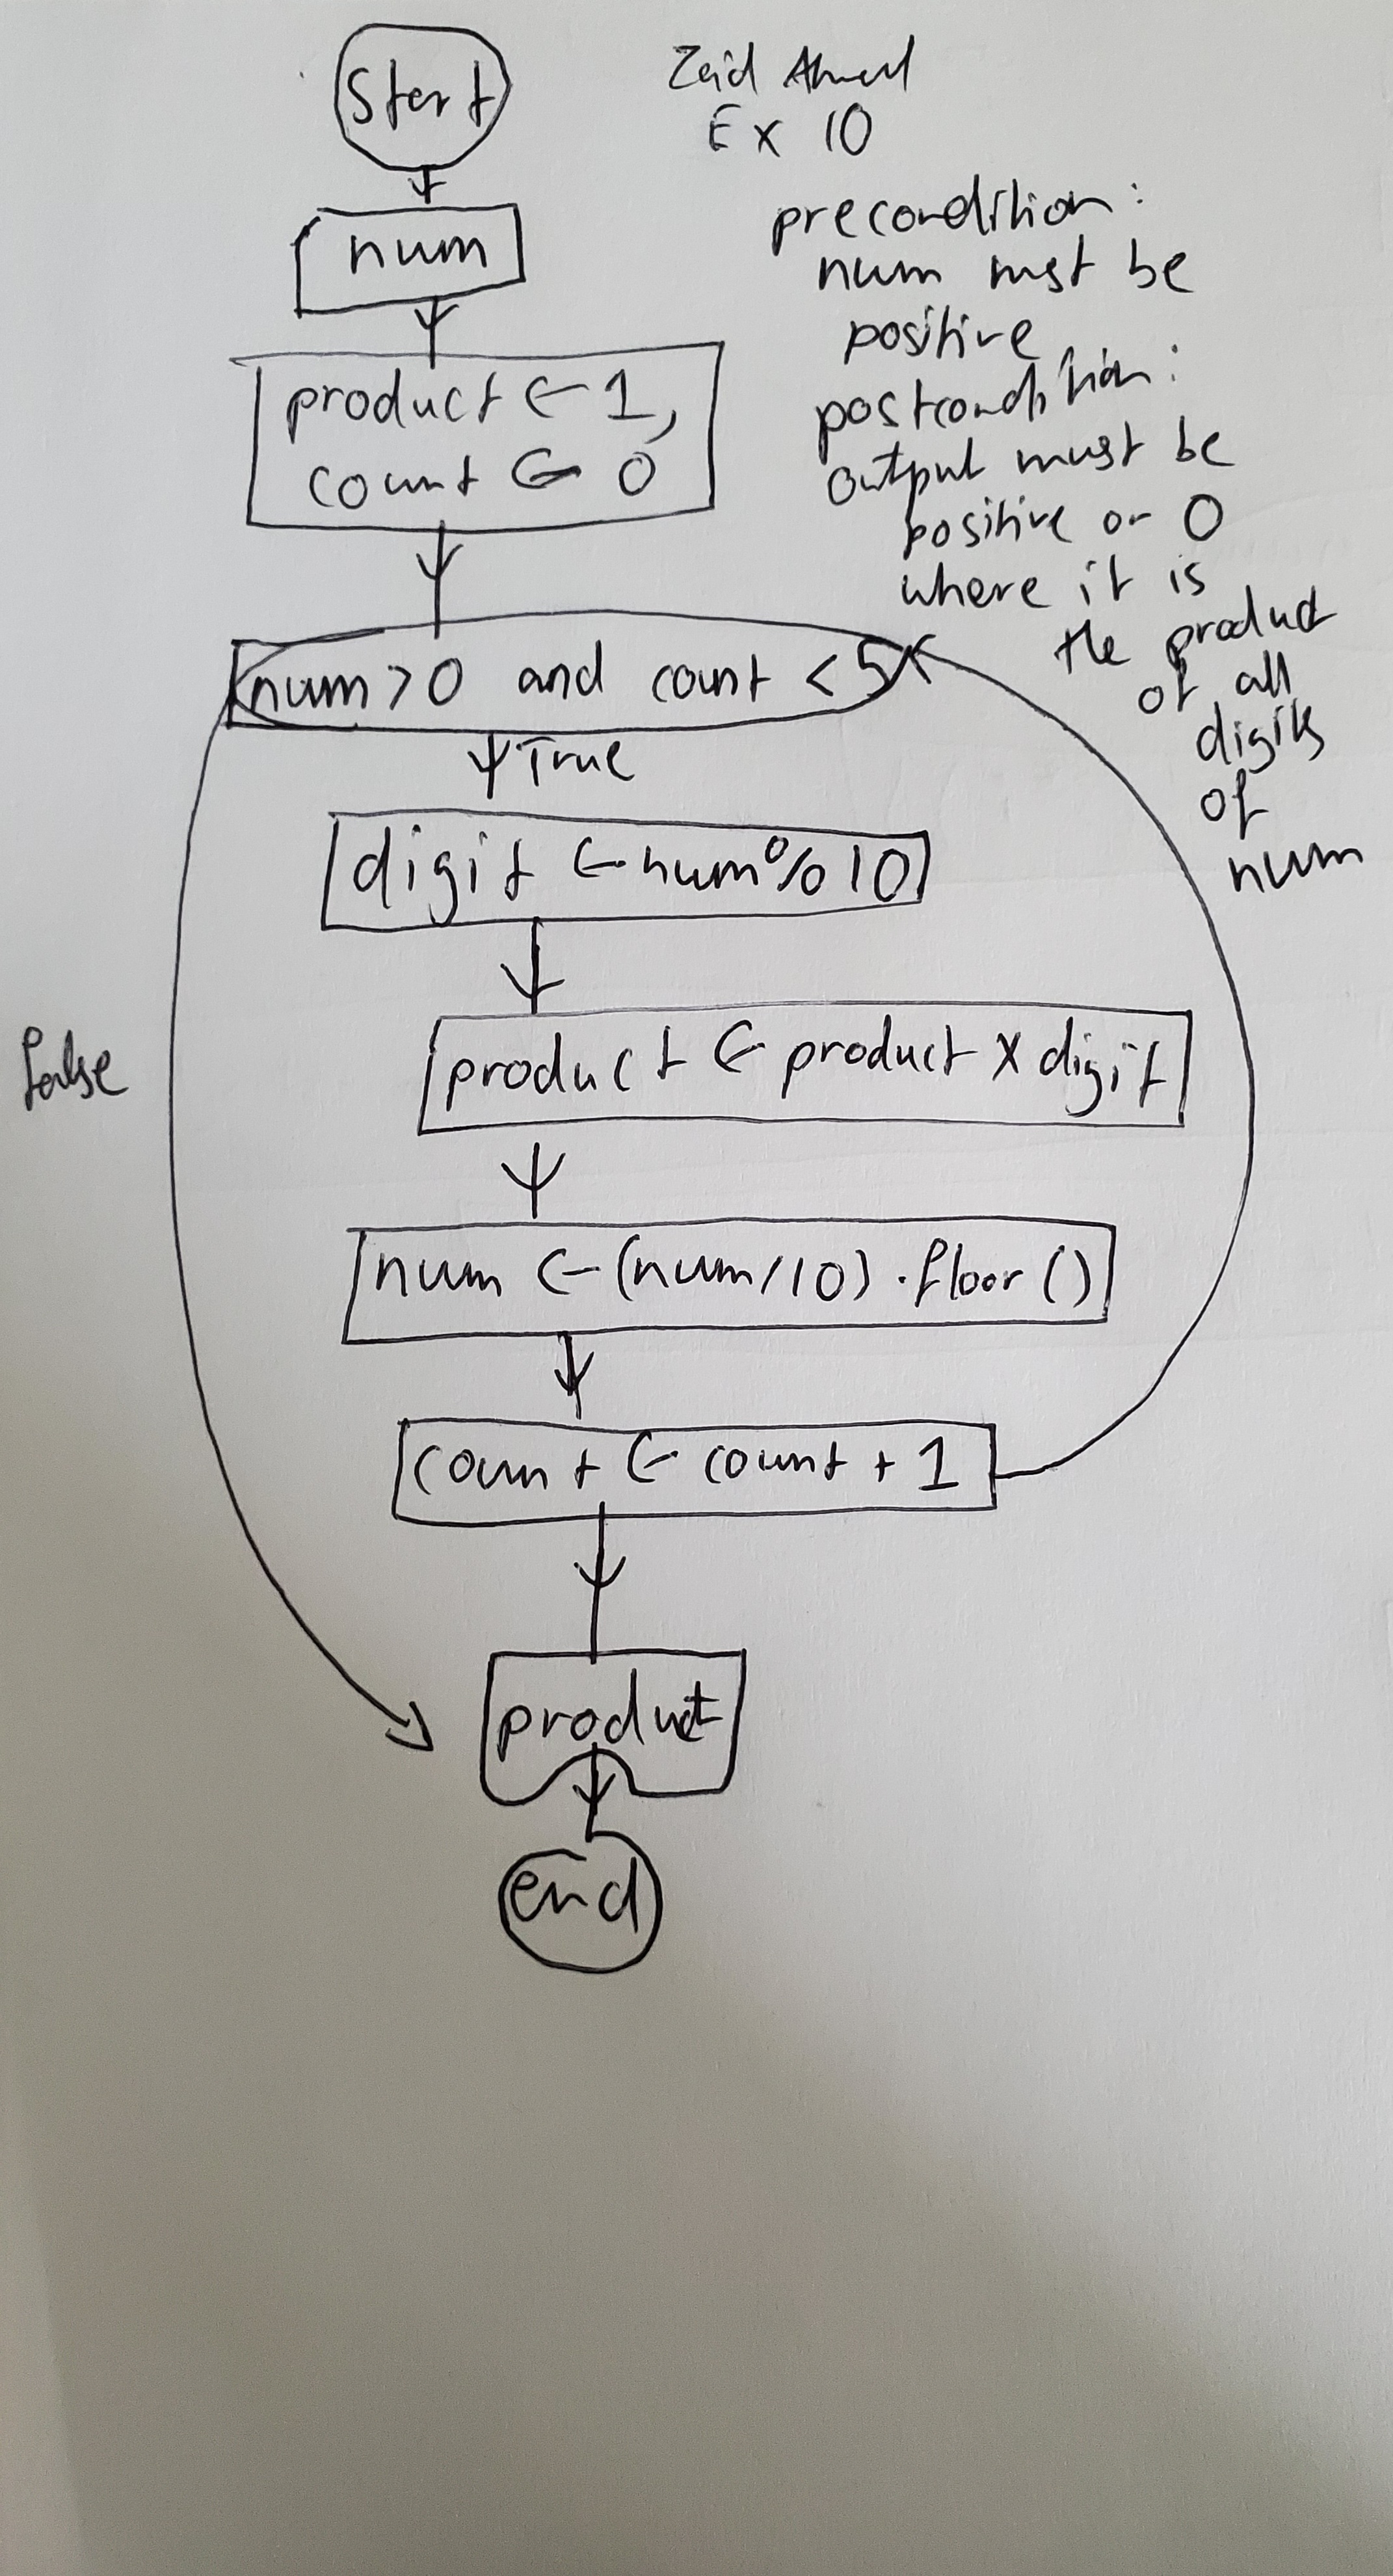 Start
Zaid Ahmed
Ex 10
num
precondition:
num mst be
positive
postcondition:
output must be
positive or 0
where it is
the product
of all
digits
of
num
product ← 1,
count ← 0
num > 0 and count < 5
True
false
digit ← num % 10
product ← product x digit
num ← (num/10).floor()
count ← count + 1
product
end